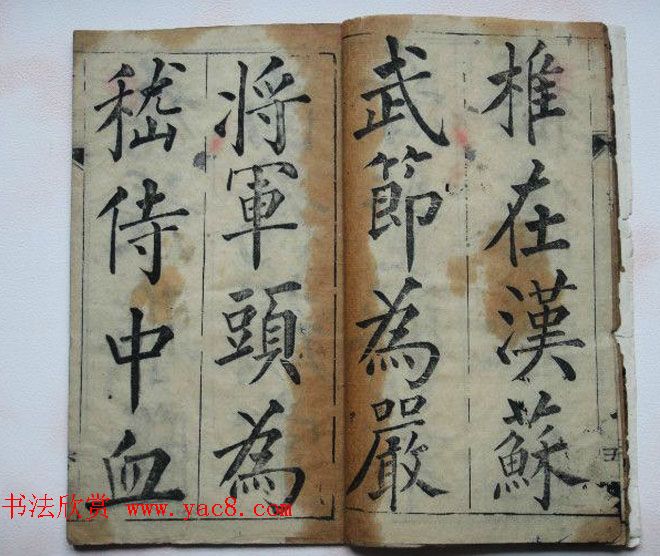 椎在漢蘇
武節為嚴
將軍頭為
嵇侍中血
书法欣赏 www.yac8.com